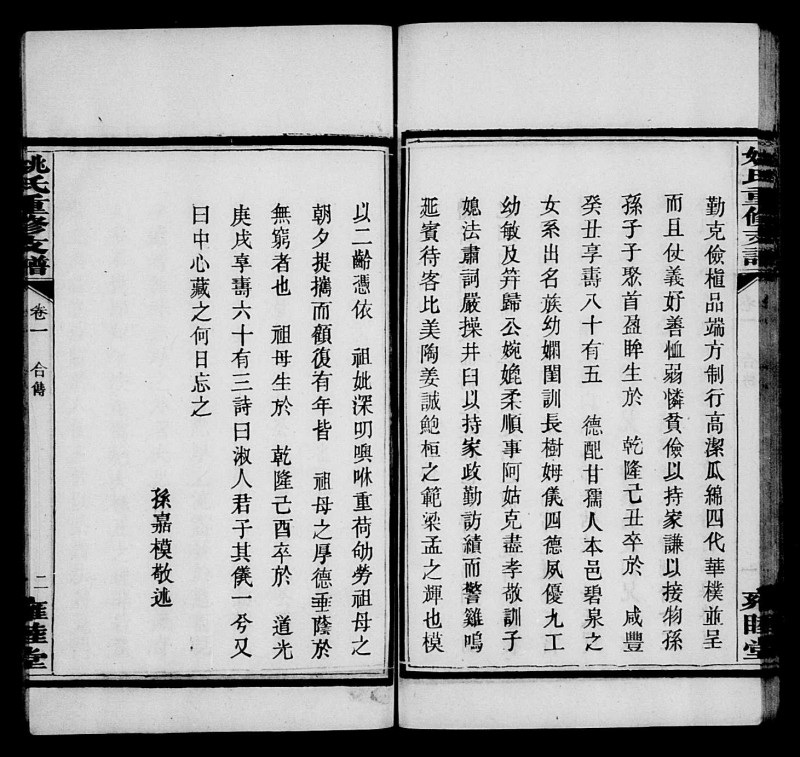 勤克儉植品端方制行高潔瓜綿四代華樸並呈
而且仗義好善恤弱憐貧儉以持家謙以接物孫
孫子子聚首盈眸生於 乾隆己丑卒於 咸豐
癸丑享壽八十有五 德配甘孺人本邑碧泉之
女系出名族幼嫻閨訓長樹姆儀四德夙優九工
幼敏及笄歸公婉娩柔順事阿姑克盡孝敬訓子
媳法肅詞嚴操井臼以持家政勤訪績而警雞鳴
延賓待客比美陶姜誠鮑桓之範梁孟之輝也模
姚氏重修支譜
雍睦堂
以二齡憑依 祖妣深叨噢咻重荷劬勞祖母之
朝夕提攜而顧復有年皆 祖母之厚德垂蔭於
無窮者也 祖母生於 乾隆己酉卒於 道光
庚戌享壽六十有三詩曰淑人君子其儀一兮又
曰中心藏之何日忘之
孫嘉模敬述
姚氏重修支譜
卷一 合傳
二
雍睦堂